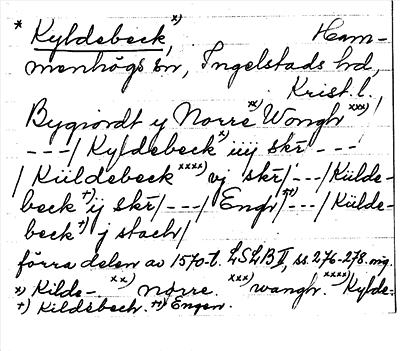 * Kyldebeck, x) Ham-
menhögs sn, Ingelstads hd,
Krist. l.
Bygiordt y Norre xx) Wongh xxx) /
---/ Kyldebeck x) iiij skr ---
/ Küldebeck xxxx) vj skr /---/ Külde-
beck +) ij skr /---/ Engr ++) /---/ Külde-
beck +) j stach /
förra delen av 1570-t. LSLB II, ss. 276-278. mg.
x) Kilde- xx) nørre. xxx) wangh. xxxx) Kylde-
+) Kildebech. ++) Engen.